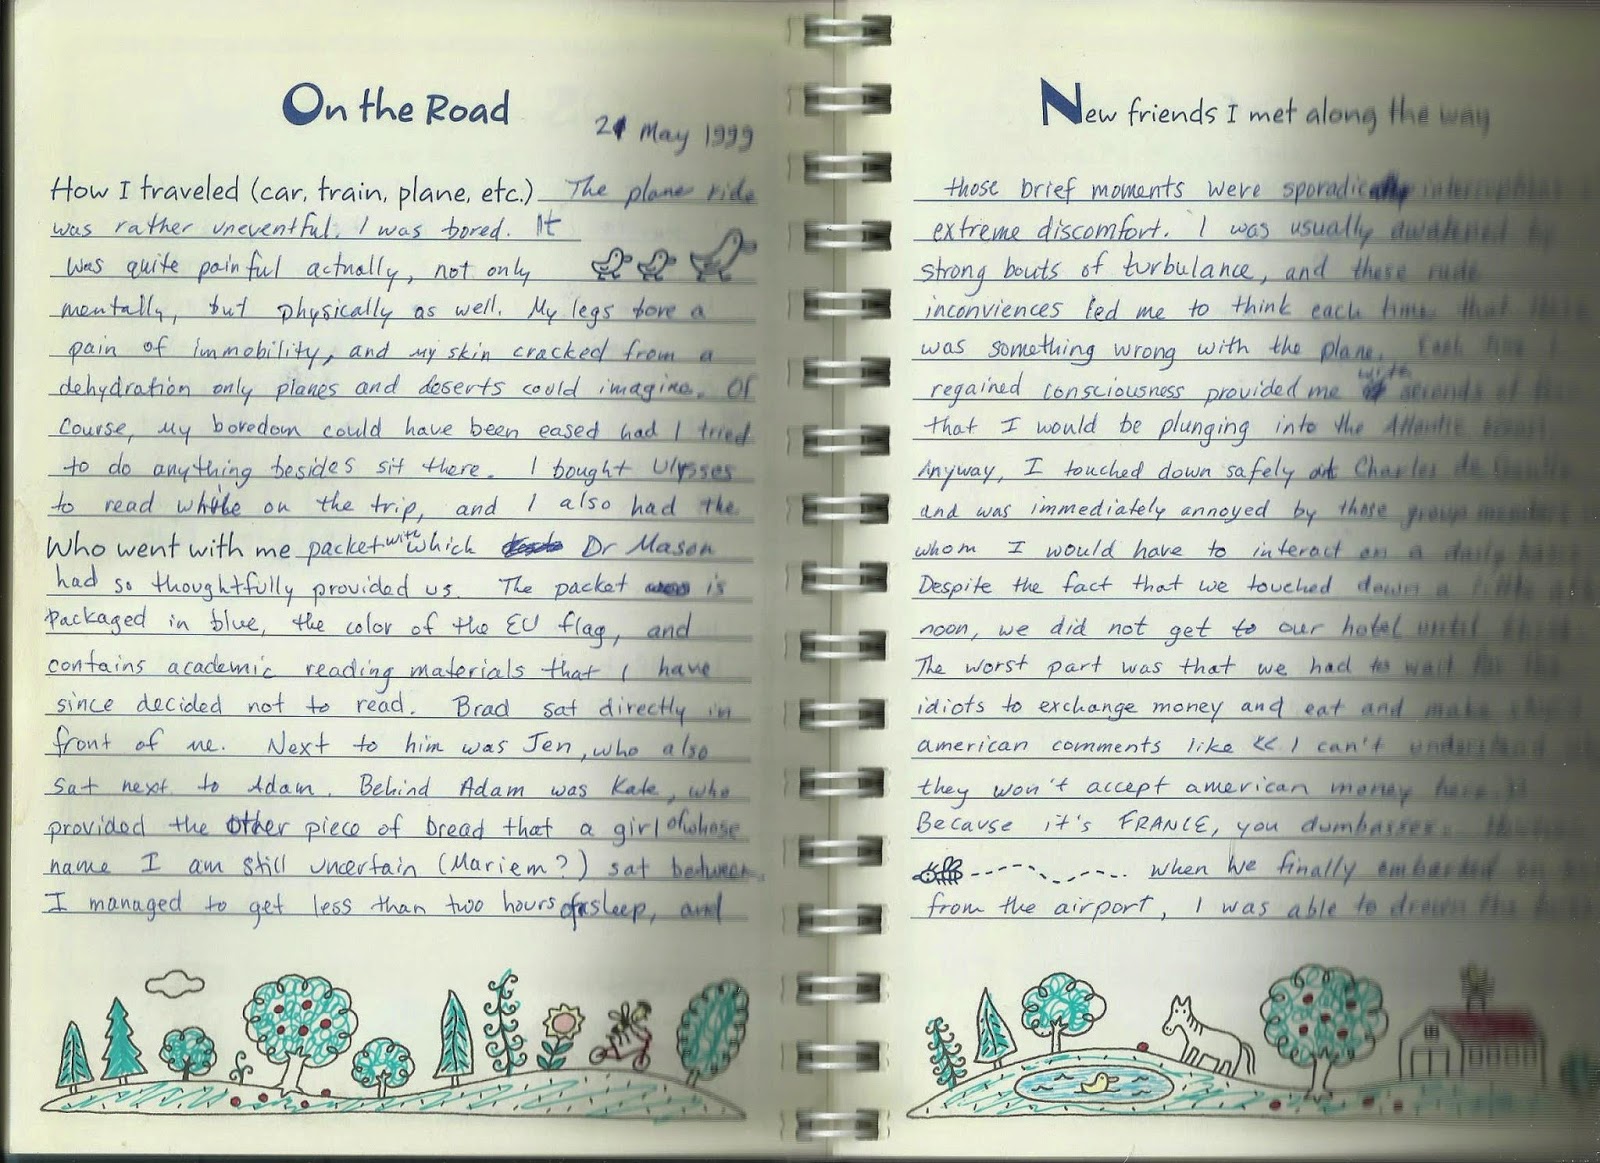 On the Road
21 May 1999
How I traveled (car, train, plane, etc.) The plane ride
was rather uneventful. I was bored. It
was quite painful actually, not only
mentally, but physically as well. My legs bore a
pain of immobility, and my skin cracked from a
dehydration only planes and deserts could imagine. Of
course, my boredom could have been eased had I tried
to do anything besides sit there. I bought Ulysses
to read while on the trip, and I also had the
Who went with me packet with which Dr Mason
had so thoughtfully provided us. The packet is
packaged in blue, the color of the EU flag, and
contains academic reading materials that I have
since decided not to read. Brad sat directly in
front of me. Next to him was Jen, who also
sat next to Adam. Behind Adam was Kate, who
provided the other piece of bread that a girl of whose
name I am still uncertain (Mariem?) sat between.
I managed to get less than two hours of sleep, and
New friends I met along the way
those brief moments were
extreme discomfort. I was usually awakened by
strong bouts of turbulance, and these rude
inconviences led me to think each time that
was something wrong with the plane. Each time I
regained consciousness provided me with seconds of
that I would be plunging into the Atlantic
Anyway, I touched down safely at Charles de Gaulle
and was immediately annoyed by those group members
whom I would have to interact on a daily
Despite the fact that we touched down a little
noon, we did not get to our hotel until
The worst part was that we had to wait for the
idiots to exchange money and eat and make
american comments like << I can't understand
they won't accept american money here >>
Because it's FRANCE, you dumbasses.
when we finally embarked on
from the airport, I was able to drown the